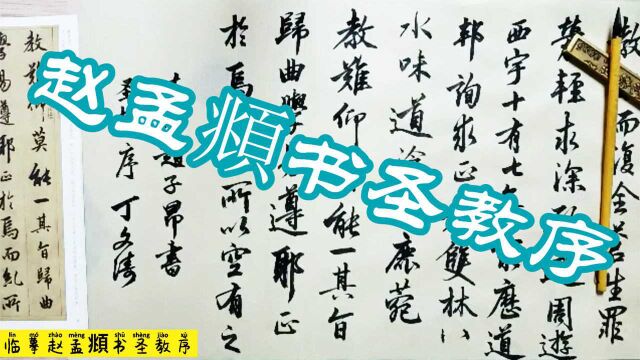 赵孟頫书圣教序
教而復全蒼生罪
勞輕求深周遊
西宇十有七年歷道
邦詢求正雙林八
水味道鹿菀
教難仰能一其旨
歸曲學遵邪正
於焉所以空有之
趙子昂書
聖序丁文濤
教難仰莫能一其旨歸曲
學易遵邪正於焉而糺所
lín mó zhào mèng shū shèng jiào xù
临摹赵孟頫书圣教序